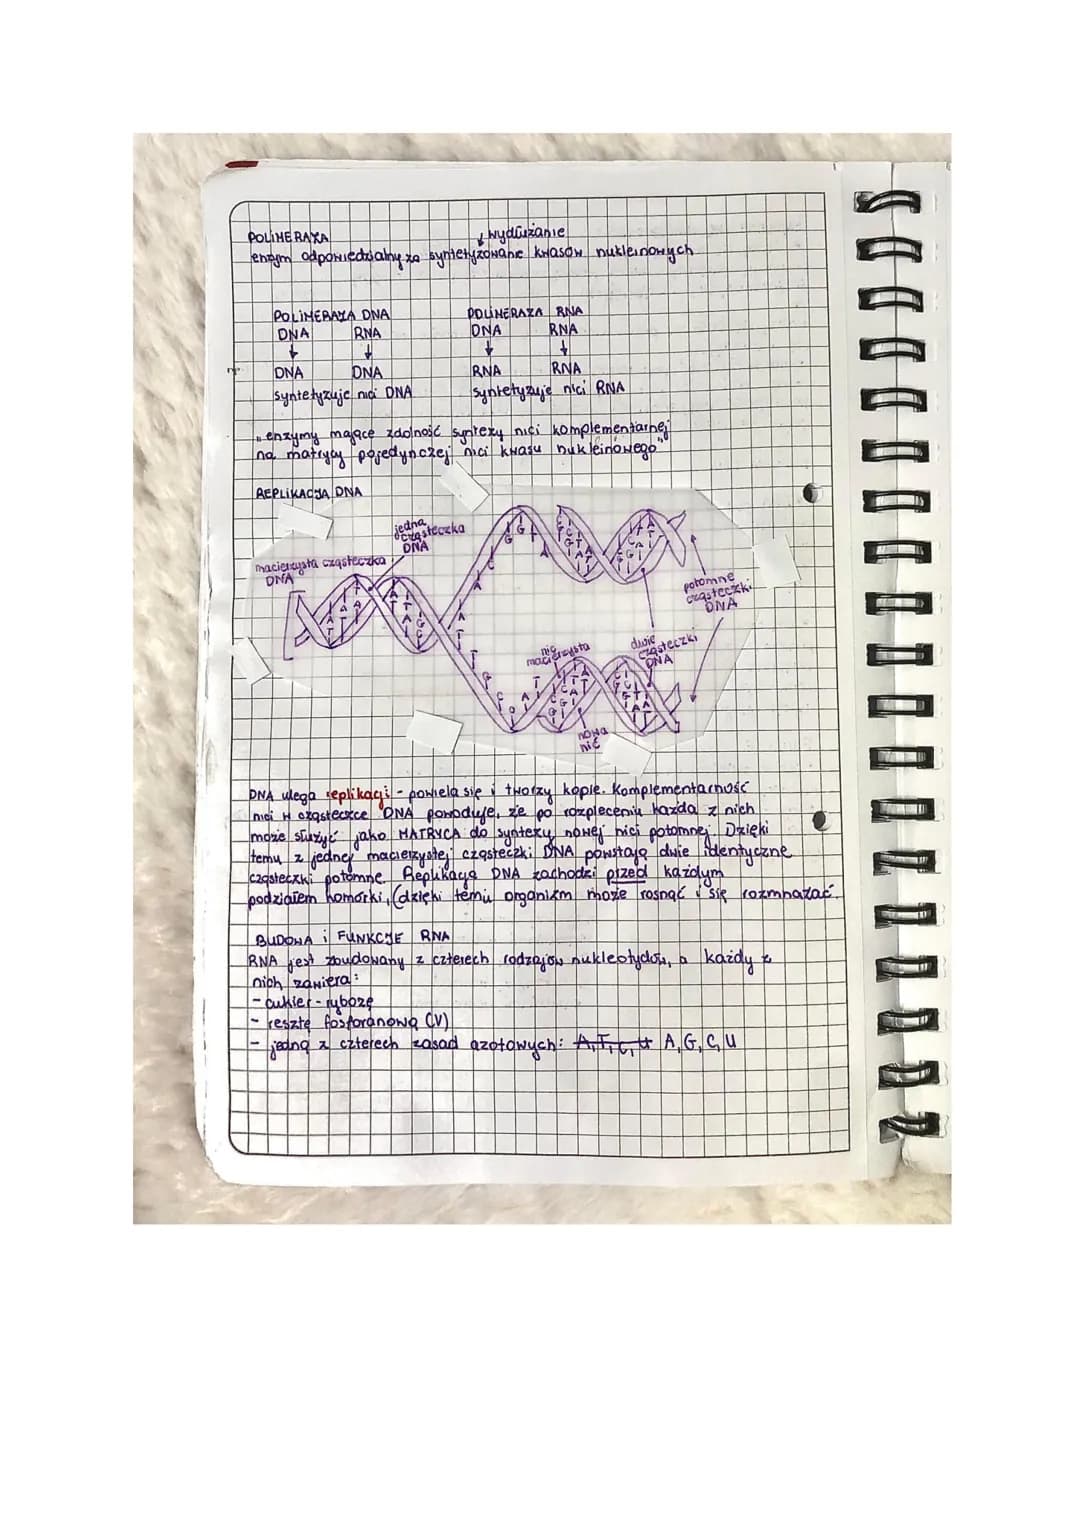 POLIMERAZA
↓ wydłużanie
enzym odpowiedzialny za syntetyzowanie kwasów nukleinowych
POLIMERAZA DNA POLIMERAZA RNA
DNA RNA DNA RNA
↓ ↓ ↓ ↓
DNA DNA RNA RNA
syntetyzuje nici DNA syntetyzuje nici RNA
„enzymy mające zdolność syntezy nici komplementarnej
na matrycy pojedynczej nici kwasu nukleinowego"
REPLIKACJA DNA
jedna
cząsteczka
DNA
macierzysta cząsteczka
DNA
potomne
cząsteczki
DNA
nić
macierzysta
dwie
cząsteczki
DNA
nowa
nić
DNA ulega replikacji - powiela się i tworzy kopie. Komplementarność
nici w cząsteczce DNA powoduje, że po rozpleceniu każda z nich
może służyć jako MATRYCA do syntezy nowej nici potomnej. Dzięki
temu z jednej macierzystej cząsteczki DNA powstają dwie identyczne
cząsteczki potomne. Replikacja DNA zachodzi przed każdym
podziałem komórki, (dzięki temu organizm może rosnąć i się rozmnażać.
BUDOWA i FUNKCJE RNA
RNA jest zbudowany z czterech rodzajów nukleotydów, a każdy z
nich zawiera:
- cukier - rybozę
- resztę fosforanową (V)
- jedną z czterech zasad azotowych: A, T, C, U A, G, C, U